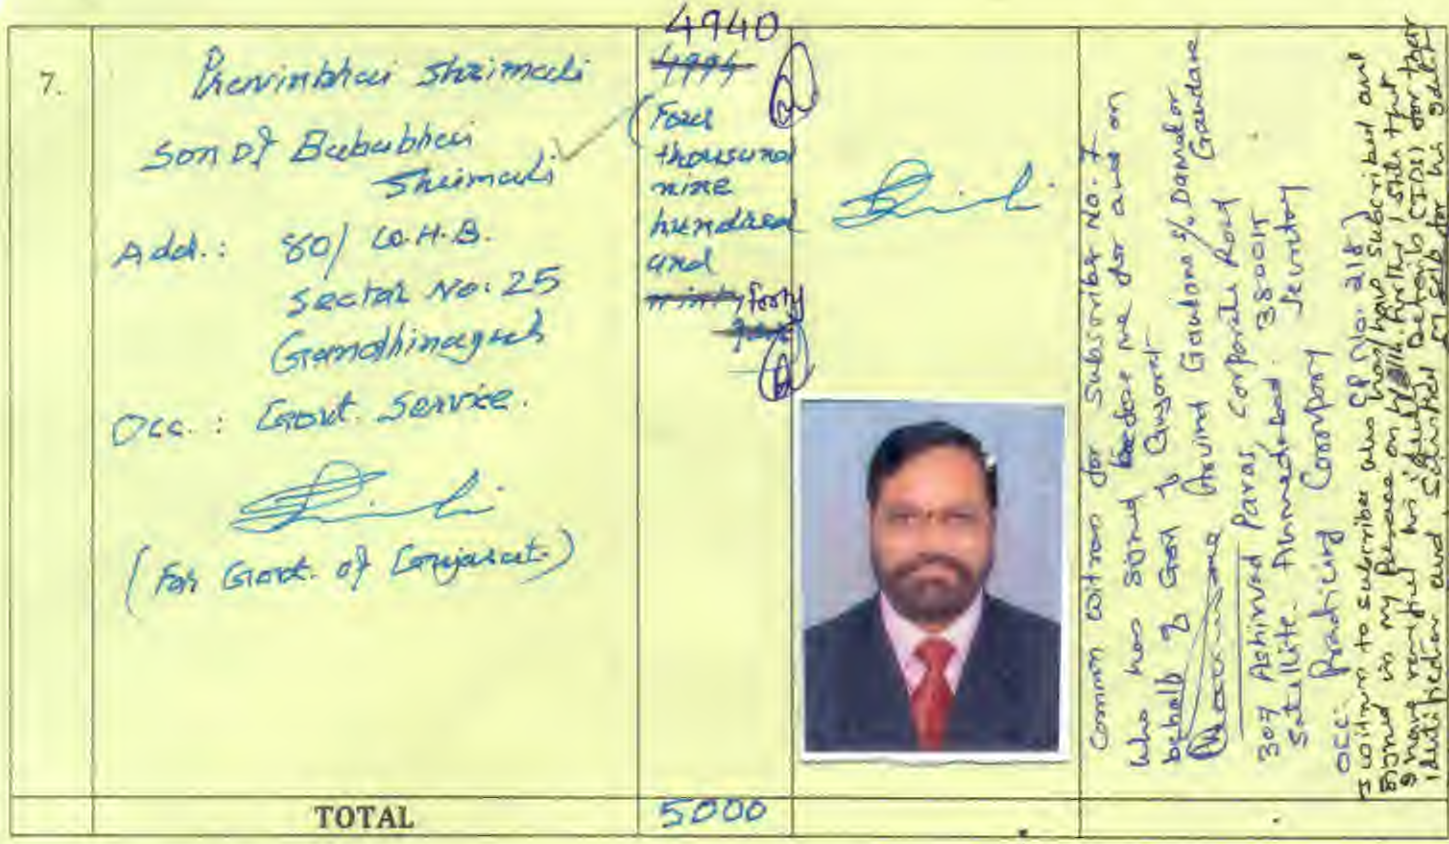 7.
Pravinbhai Shrimali
Son of Babubhai
Shrimali
Add.: 80/ L.H.B.
Sector No: 25
Gandhinagar
Occ.: Govt. Service.
(For Govt. of Gujarat.)
4940
4994
(Four
thousand
nine
hundred
and
ninty forty
Common witness for Subscriber No. 7
who has signed before me for and on
behalf of Govt of Gujarat
Arvind Gaudana S/o Damodar Gaudana
307 Ashirvad Paras, Corporate Road
Satellite. Ahmedabad. 380015
Occ: Practicing Company Secretary
CP No. 218)
I witness to subscriber who has/have subscribed and
signed in my presence on further state that
I have verified his identity Details (ID) for their
identification and satisfied
TOTAL
5000